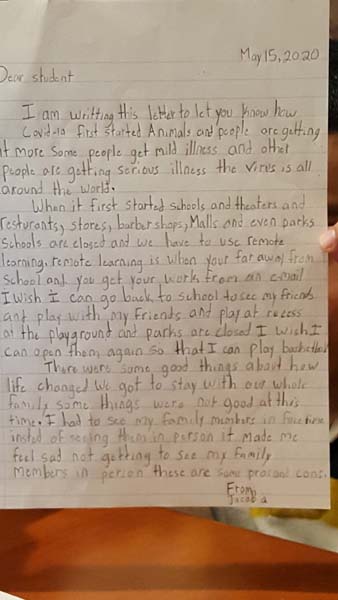 May 15, 2020
Dear student
I am writting this letter to let you know how
Covid-19 first started Animals and people are getting
it more some people get mild illness and other
people are getting serious illness the virus is all
around the world.
When it first started schools and theaters and
resturants, stores, barber shops, Malls and even parks
schools are closed and we have to use remote
learning. remote learning is when your far away from
school and you get your work from an email
I wish I can go back to school to see my friends
and play with my friends and play at recess
at the playground and parks are closed I wish I
can open them again so that I can play
There were some good things about how
life changed we got to stay with our whole
family some things were not good at this
time. I had to see my family members in face time
insted of seeing them in person it made me
feel sad not getting to see my family
members in person these are some pros and cons.
From,
Jacob